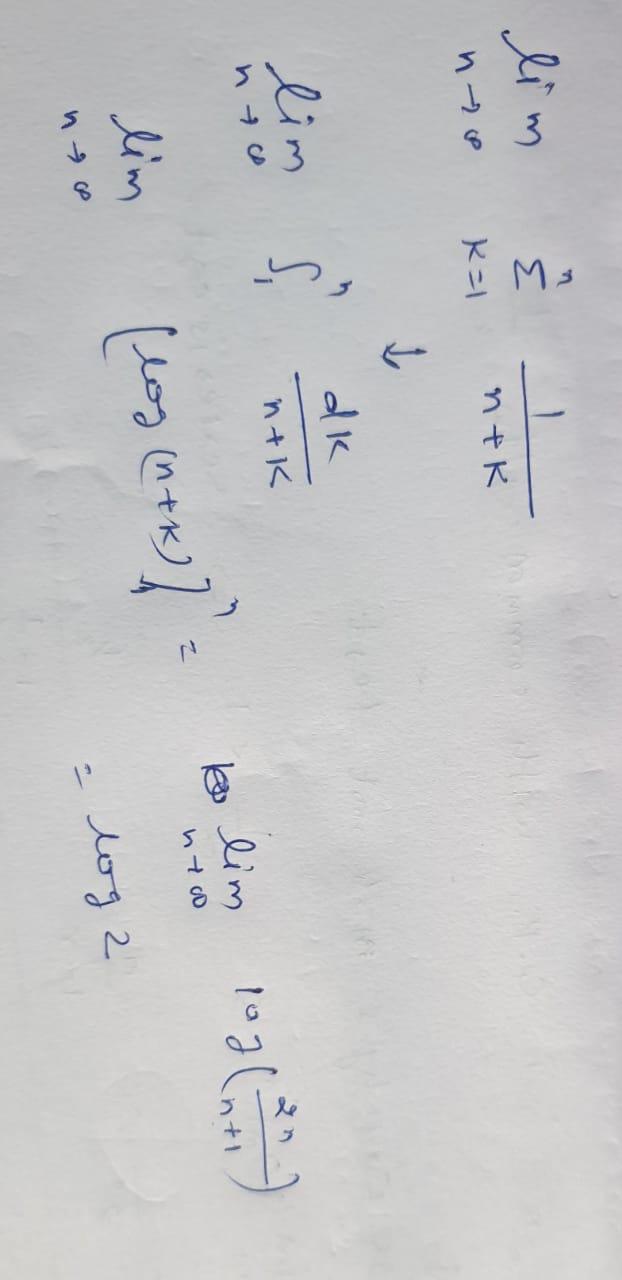 lim n→∞ Σ k=1 n 1/(n+k)
↓
lim n→∞ ∫ 1 n dk/(n+k)
lim n→∞ [log(n+k)] 1 n = lim n→∞ log(2n/(n+1))
= log 2